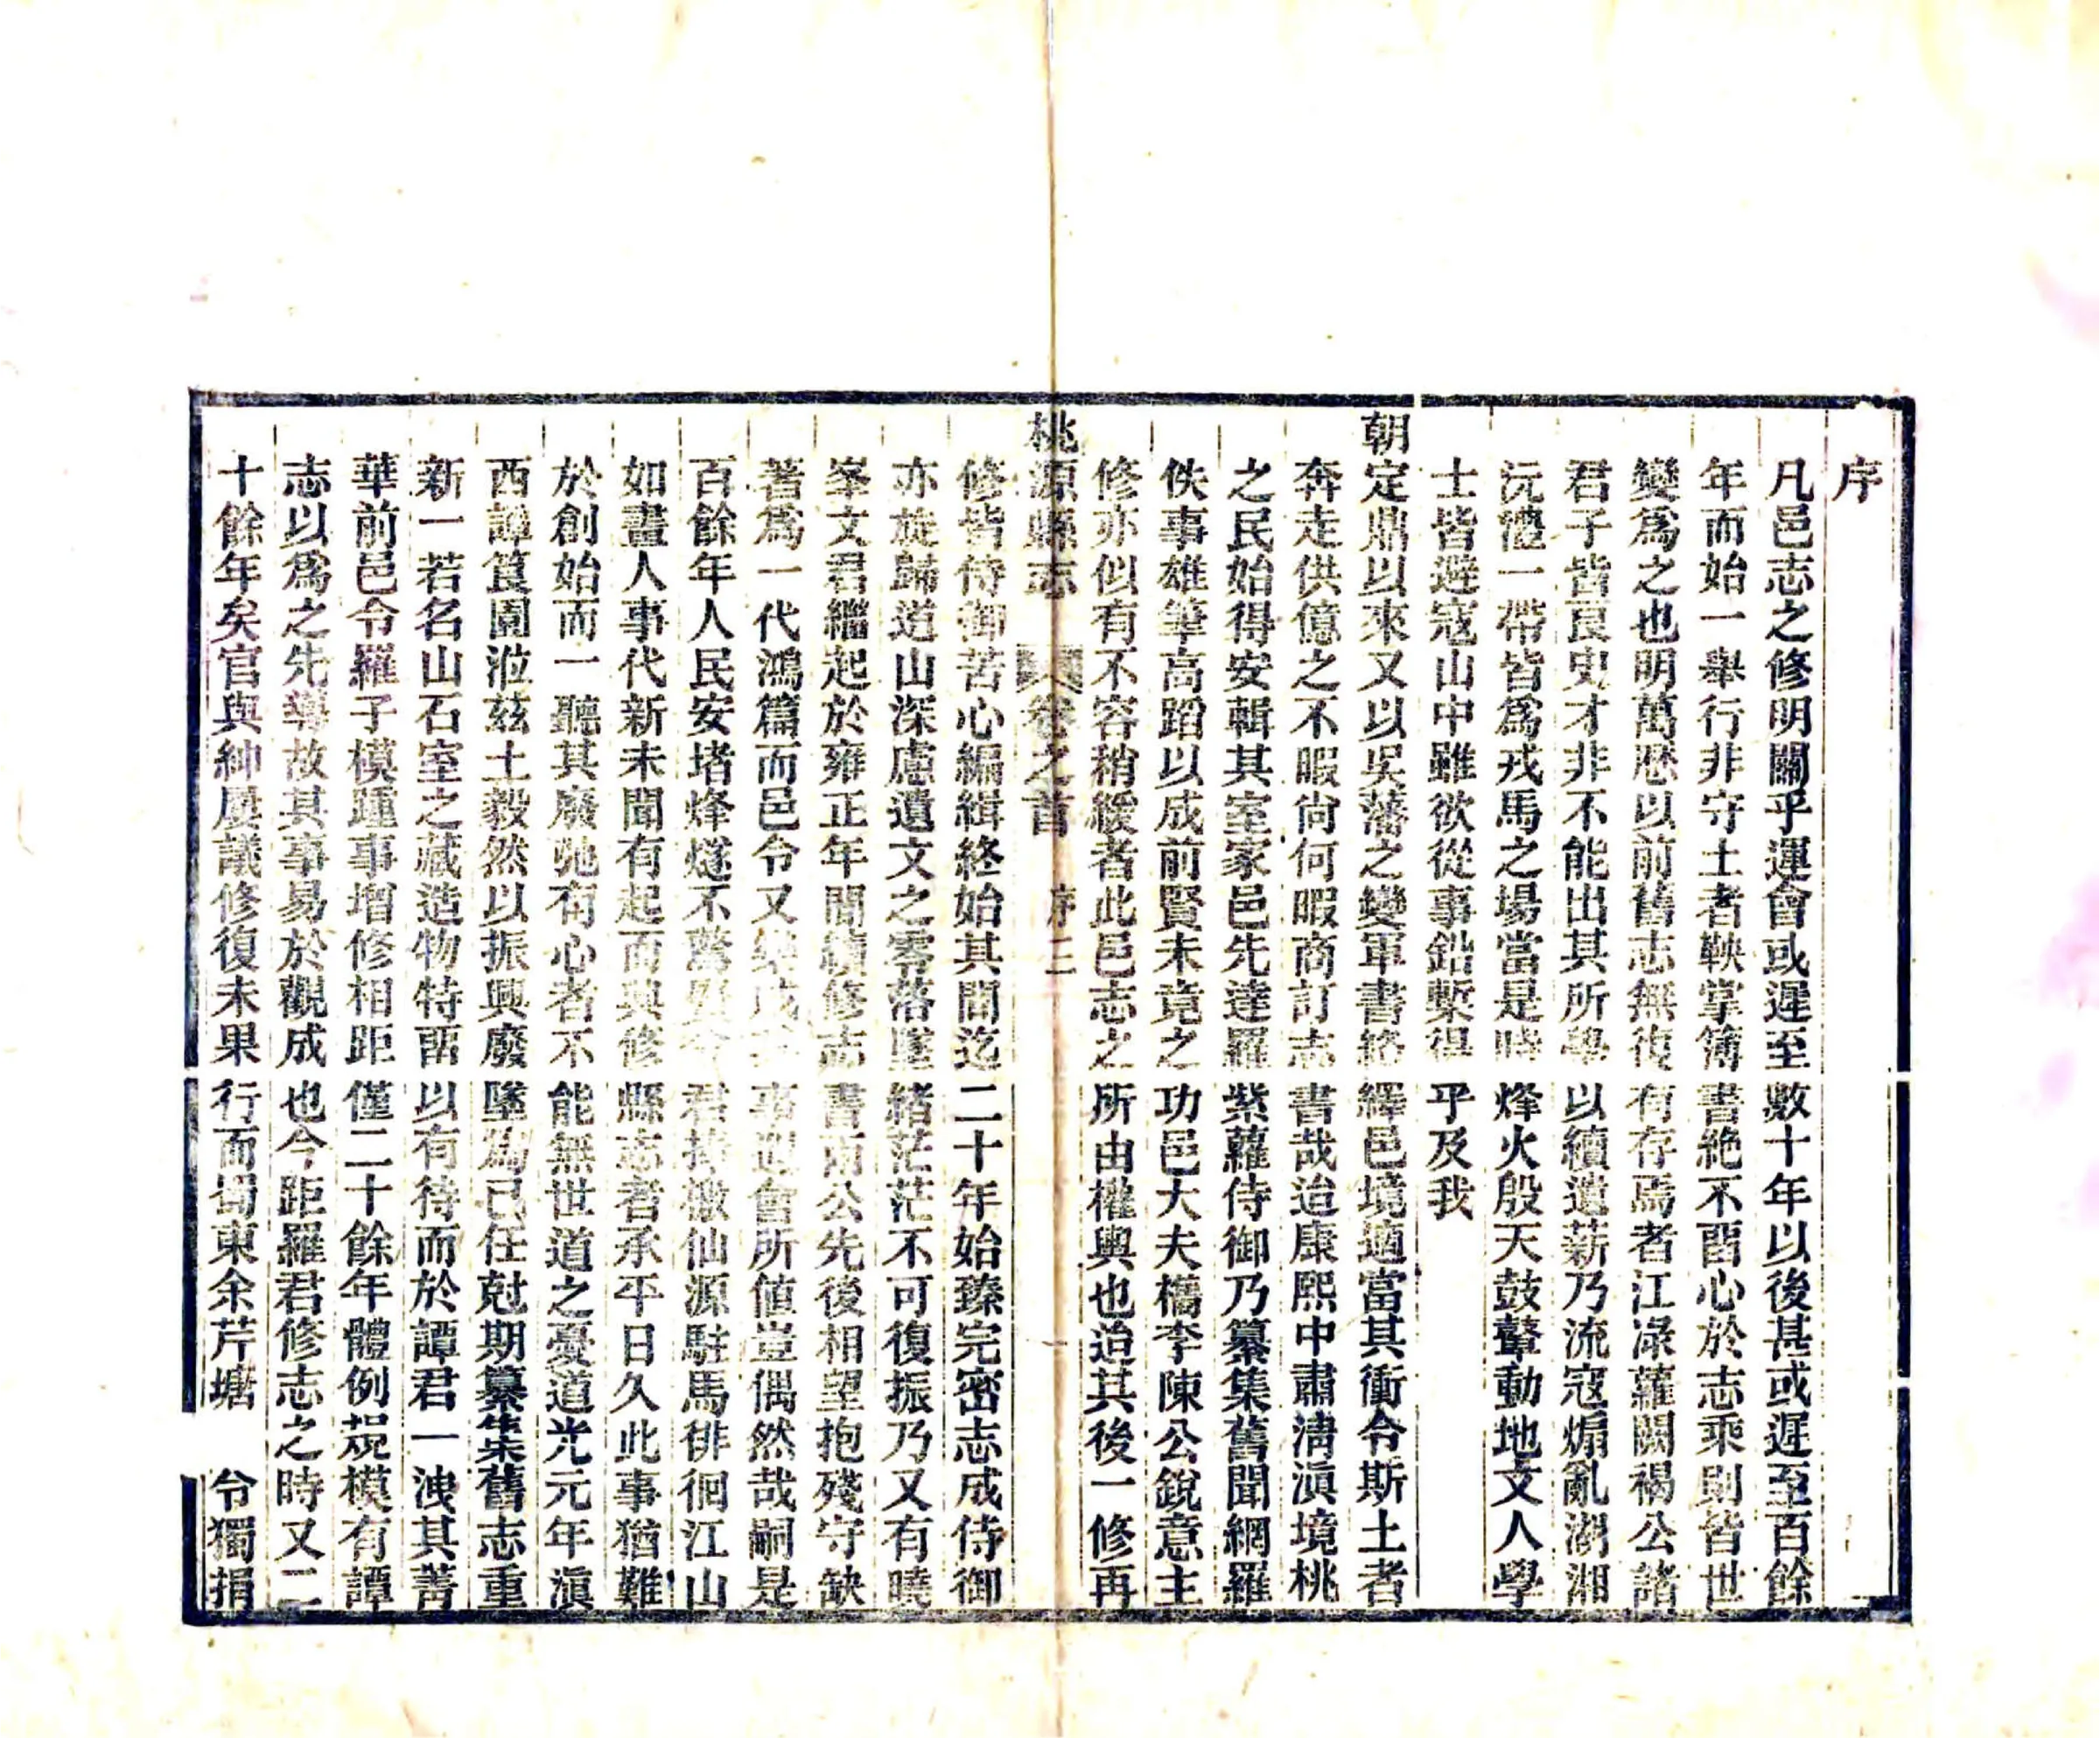 序
凡邑志之修明關乎運會或遲至數十年以後甚或遲至百餘
年而始一舉行非守土者鞅掌簿書絶不畱心於志乘則皆世
變爲之也明萬厯以前舊志無復有存焉者江渌蘿闕褐公諸
君子皆良史才非不能出其所學以續遺薪乃流寇煽亂湖湘
沅澧一帶皆爲戎馬之場當是時烽火殷天鼓鼙動地文人學
士皆避寇山中雖欲從事鉛槧得乎及我
朝定鼎以來又以吳藩之變軍書絡繹邑境適當其衝令斯土者
奔走供億之不暇尚何暇商訂志書哉迨康熙中肅清滇境桃
之民始得安輯其室家邑先達羅紫蘿侍御乃纂集舊聞網羅
佚事雄筆高蹈以成前賢未竟之功邑大夫橋李陳公銳意主
修亦似有不容稍緩者此邑志之所由權輿也迨其後一修再
桃源縣志 卷之首 序 三
修皆侍御苦心編緝終始其間迄二十年始臻完密志成侍御
亦旋歸道山深慮遺文之零落墜緒茫茫不可復振乃又有曉
峯文君繼起於雍正年間續修志書兩公先後相望抱殘守缺
著爲一代鴻篇而邑令又樂成事遇會所値豈偶然哉嗣是
百餘年人民安堵烽燧不驚君捧檄仙源駐馬徘徊江山
如畫人事代新未聞有起而興修縣志者承平日久此事猶難
於創始而一聽其廢弛有心者不能無世道之憂道光元年滇
西譚筤園涖兹土毅然以振興廢墜為己任尅期纂集舊志重
新一若名山石室之藏造物特畱以有待而於譚君一洩其菁
華前邑令羅子模踵事增修相距僅二十餘年體例規模有譚
志以爲之先導故其事易於觀成也今距羅君修志之時又二
十餘年矣官與紳屢議修復未果行而蜀東余芹塘 令獨捐